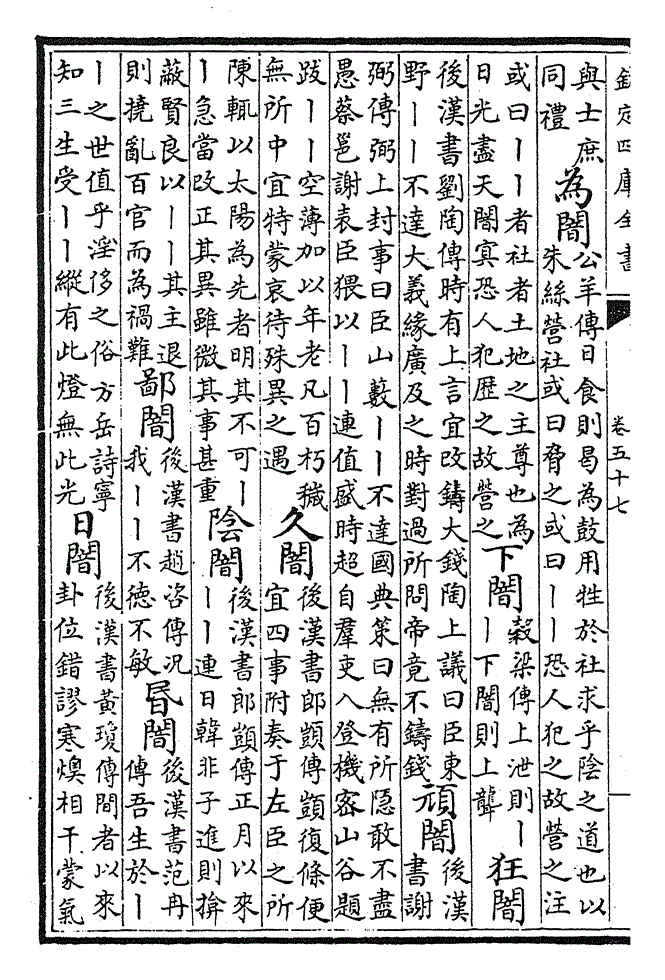 欽定四庫全書
卷五十七
與士庶同禮 為闇 公羊傳日食則曷為鼓用牲於社求乎陰之道也以朱絲營社或曰脅之或曰丨丨恐人犯之故營之注
或曰丨丨者社者土地之主尊也為日光盡天闇冥恐人犯歷之故營之 下闇 榖梁傳上泄則丨丨下闇則上聾 狂闇
後漢書劉陶傳時有上言宜改鑄大錢陶上議曰臣東野丨丨不達大義緣廣及之時對過所問帝竟不鑄錢 頑闇 後漢書謝
弼傳弼上封事曰臣山藪丨丨不達國典策曰無有所隠敢不盡愚蔡邕謝表臣猥以丨丨連值盛時超自羣吏入登機宻山谷題
跋丨丨空薄加以年老凡百朽穢無所中宜特蒙哀待殊異之遇 久闇 後漢書郎顗傳顗復條便宜四事附奏于左臣之所
陳輒以太陽為先者明其不可丨丨急當改正其異雖微其事甚重 陰闇 後漢書郎顗傳正月以來丨丨連日韓非子進則揜
蔽賢良以丨丨其主退則撓亂百官而為禍難 鄙闇 後漢書趙咨傳況我丨丨不德不敏 昬闇 後漢書范冉傳吾生於丨
丨之世值乎淫侈之俗方岳詩寧知三生受丨丨縱有此燈無此光 日闇 後漢書黃瓊傳間者以來卦位錯謬寒燠相干蒙氣